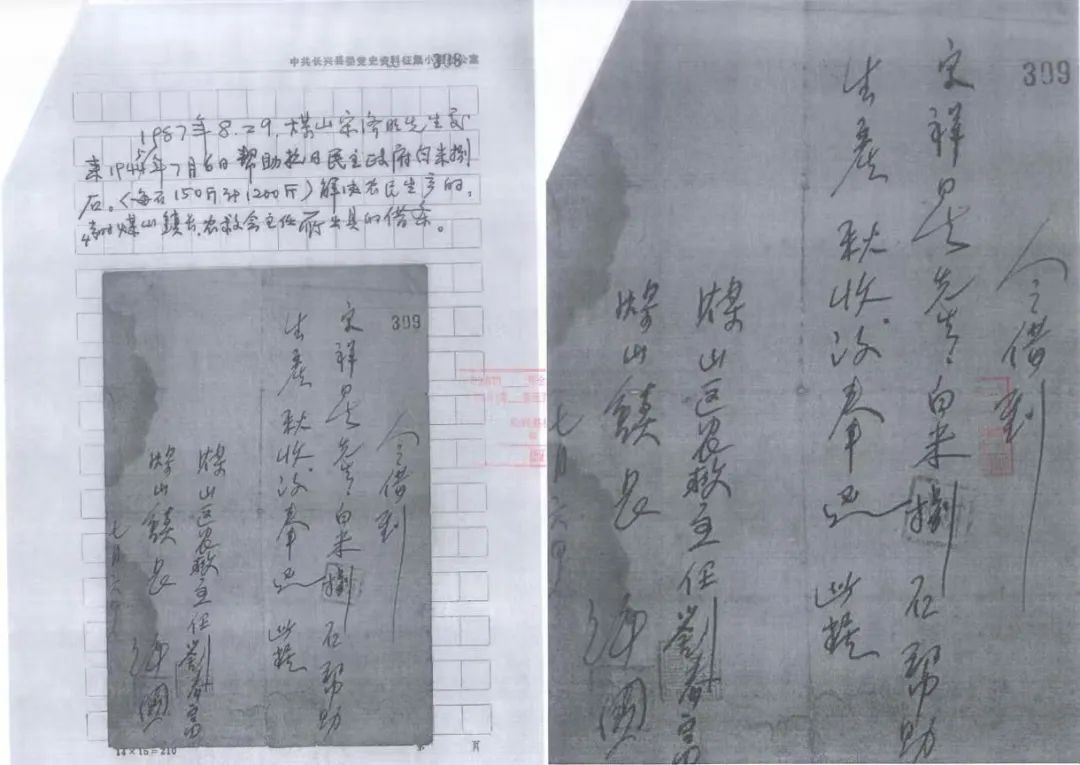 中共长兴县委党史资料征集小组办公室
308
1987年8.29,煤山宋泽旺先生交
来1945年7月6日帮助抗日民主政府白米捌
石。(每石150斤计1200斤)解决农民生产的,
当时煤山镇长、农救会主任所出具的借条。
309
今借到
宋祥 先生 白米捌石帮助
生产 秋收后奉还 此据
煤山区农救主任劉
煤山鎮長
七月六日
14×15=210
第 页
309
今借到
宋祥 先生 白米捌石帮助
生产 秋收后奉还 此据
煤山区农救主任劉
煤山鎮長
七月六日